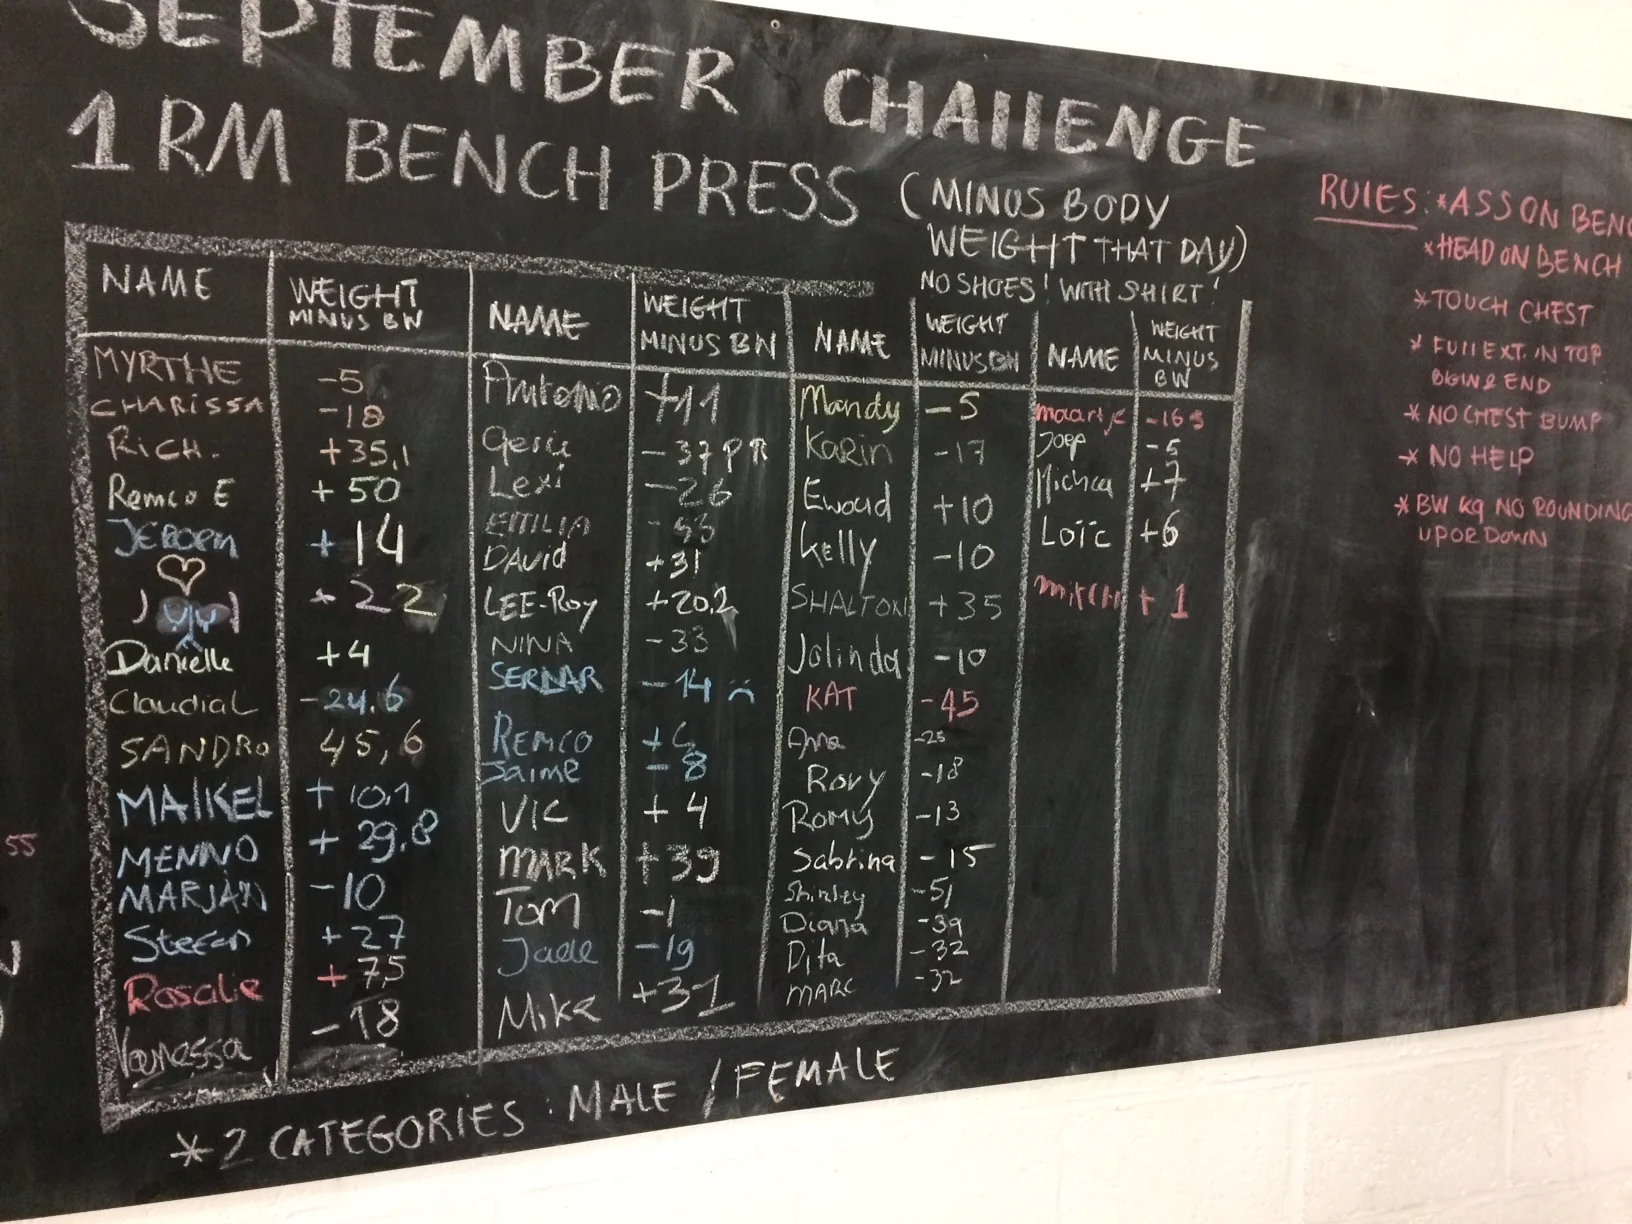 SEPTEMBER CHAllENGE
1 RM BENCH PRESS (MINUS BODY
WEIGHT THAT DAY)
NO SHOES! WITH SHIRT!
NAME WEIGHT MINUS BW
MYRTHE -5
CHARISSA -18
RICH. +35,1
Remco E +50
JEROEN +14
+22
Danielle +4
Claudia L -24,6
SANDRO 45,6
MAIKEL + 10,1
MENNO + 29,8
MARJAN -10
Stefan +27
Rosalie + 7,5
Vanessa -18
NAME WEIGHT MINUS BW
Antonio +11
-37 PR
Lexi -26
EMILIA -53
DAVID +31
LEE-ROY +20.2
NINA -33
SERNAR -14
REMCO
Jaime -8
VIC + 4
MARK +39
TOM -1
Jade -19
Mike +31
NAME WEIGHT MINUS BW
Mandy -5
KARIN -17
Ewoud +10
Kelly -10
SHALTON +35
Jolinda -10
KAT -45
Anna -25
Rory -18
Romy -13
Sabrina -15
Shirley -51
Diana -39
Dita -32
MARC -32
NAME WEIGHT MINUS BW
maartje
Joep -5
Micha +7
Loïc +6
mitch + 1
RUlES: *ASS ON BENC
*HEAD ON BENCH
*TOUCH CHEST
* FUll EXT. IN TOP
BGIN & END
* NO CHEST BUMP
* NO HELP
* BW kg NO ROUNDING
UP OR DOWN
55
*2 CATEGORIES: MALE / FEMALE